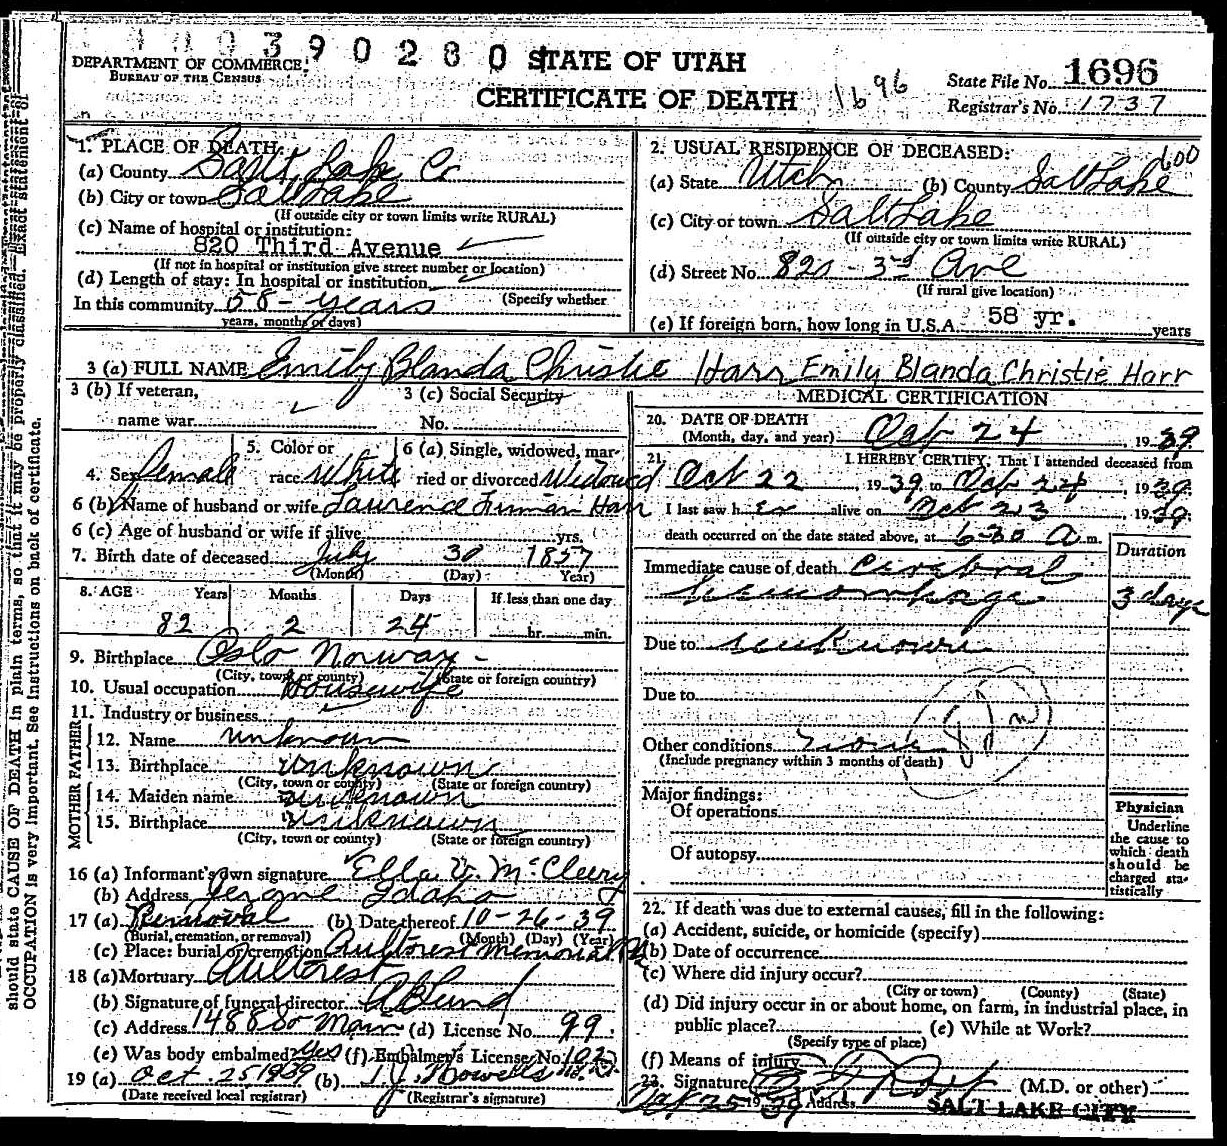 390280 STATE OF UTAH
DEPARTMENT OF COMMERCE
BUREAU OF THE CENSUS
CERTIFICATE OF DEATH
1696
State File No. 1696
Registrar's No. 1737
1. PLACE OF DEATH:
(a) County Salt Lake Co
(b) City or town Salt Lake
(If outside city or town limits write RURAL)
(c) Name of hospital or institution:
820 Third Avenue
(If not in hospital or institution give street number or location)
(d) Length of stay: In hospital or institution
(Specify whether
In this community 58 - years
years, months or days)
2. USUAL RESIDENCE OF DECEASED:
600
(a) State Utah (b) County Salt Lake
(c) City or town Salt Lake
(If outside city or town limits write RURAL)
(d) Street No. 820 - 3rd Ave
(If rural give location)
(e) If foreign born, how long in U.S.A. 58 yr. years
3 (a) FULL NAME Emily Blanda Christie Harr Emily Blanda Christie Harr
3 (b) If veteran,
name war
3 (c) Social Security
No.
4. Sex Female
5. Color or
race White
6 (a) Single, widowed, mar-
ried or divorced Widowed
6 (b) Name of husband or wife Laurence Firman Harr
6 (c) Age of husband or wife if alive yrs.
7. Birth date of deceased July 30 1857
(Month) (Day) Year)
8. AGE Years Months Days If less than one day
82 2 24 hr. min.
9. Birthplace Oslo Norway -
(City, town, or county) (State or foreign country)
10. Usual occupation Housewife
11. Industry or business
FATHER
12. Name unknown
13. Birthplace unknown
(City, town or county) (State or foreign country)
MOTHER
14. Maiden name unknown
15. Birthplace unknown
(City, town or county) (State or foreign country)
16 (a) Informant's own signature Ella V. McCleery
(b) Address Jerome Idaho
17 (a) Removal (b) Date thereof 10-26-39
(Burial, cremation, or removal) (Month) (Day) (Year)
(c) Place: burial or cremation Aultorest Memorial
18 (a) Mortuary Aultorest
(b) Signature of funeral director A B Lund
(c) Address 1488 So Main (d) License No. 99.
(e) Was body embalmed? Yes (f) Embalmer's License No. 102
19 (a) Oct. 25 1939 (b) T.J. Howells
(Date received local registrar) (Registrar's signature)
MEDICAL CERTIFICATION
20. DATE OF DEATH
(Month, day, and year) Oct 24, 1939
21. I HEREBY CERTIFY, That I attended deceased from
Oct 22, 1939 to Oct 24, 1939
I last saw h er alive on Oct 23, 1939
death occurred on the date stated above, at 6-30 A m.
Duration
Immediate cause of death Cerebral
hemorrhage 3 days
Due to unknown
Due to
Other conditions none
(Include pregnancy within 3 months of death)
Major findings:
Of operations
Of autopsy
Physician
Underline
the cause to
which death
should be
charged sta-
tistically
22. If death was due to external causes, fill in the following:
(a) Accident, suicide, or homicide (specify)
(b) Date of occurrence
(c) Where did injury occur?
(City or town) (County) (State)
(d) Did injury occur in or about home, on farm, in industrial place, in
public place? (e) While at Work?
(Specify type of place)
(f) Means of injury
23. Signature (M.D. or other)
Oct 25 1939 Address SALT LAKE CITY
should state CAUSE OF DEATH in plain terms, so that it may be properly classified. Exact statement of
OCCUPATION is very important. See instructions on back of certificate.